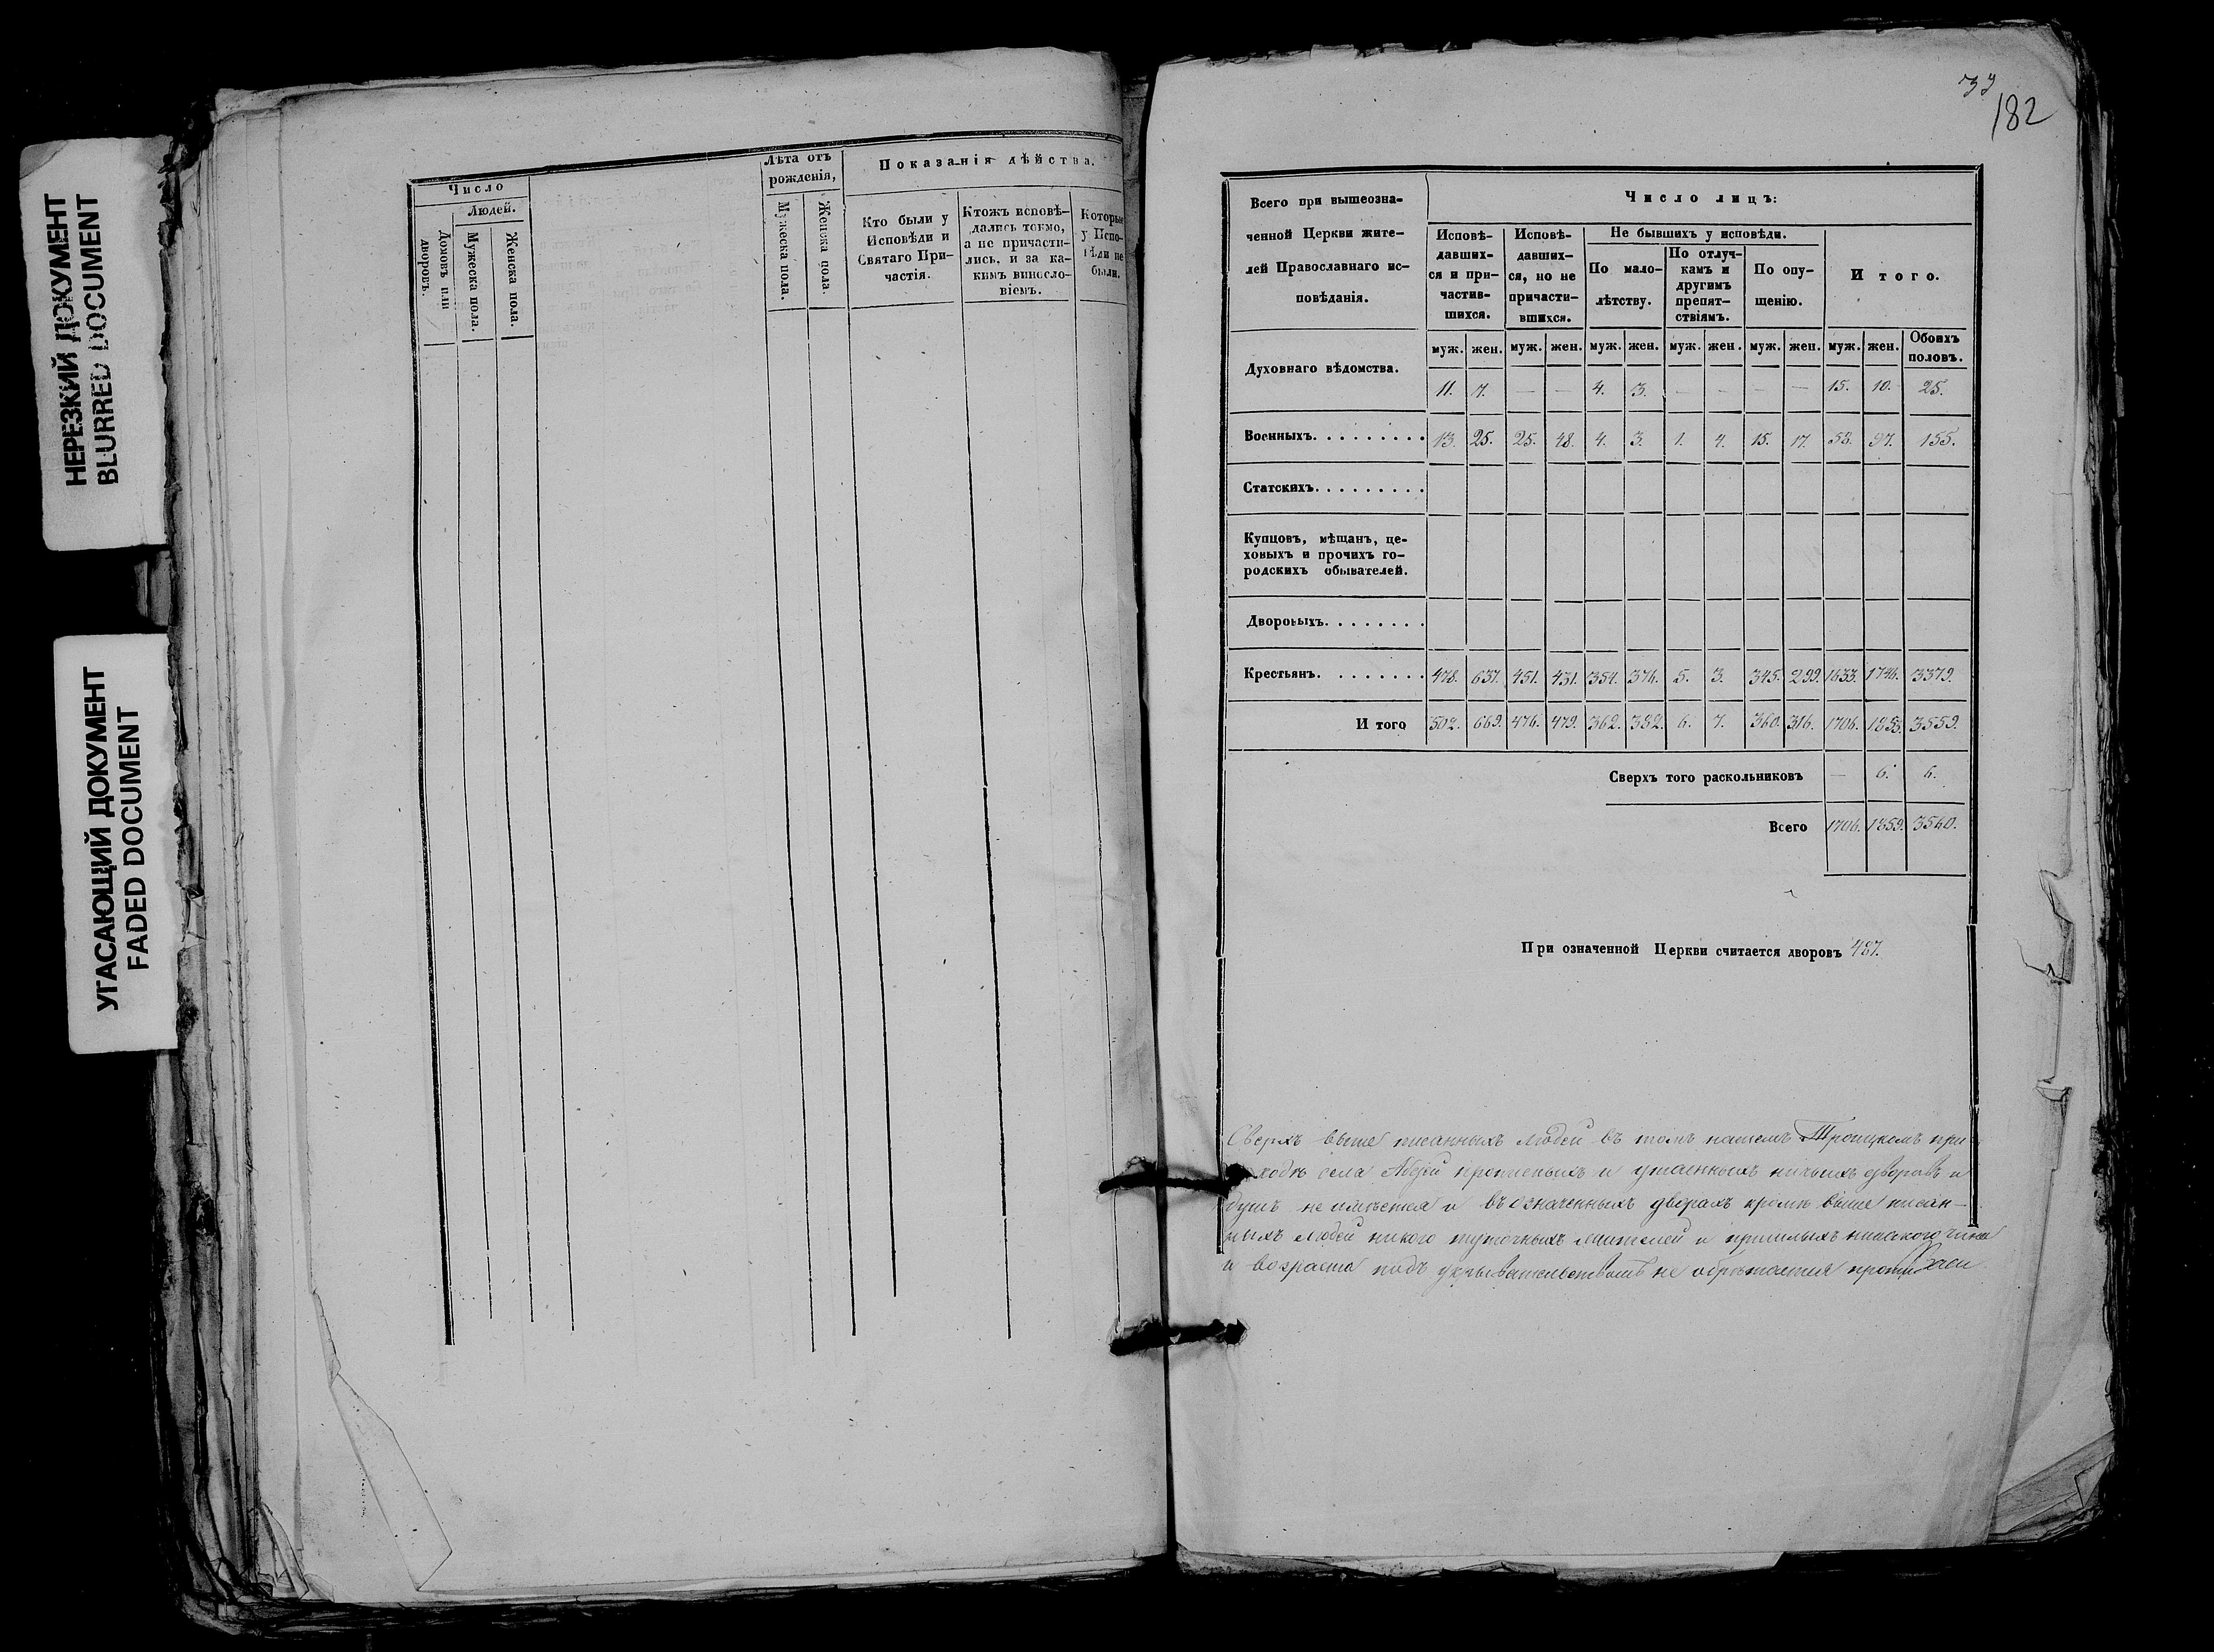 НЕРЕЗКИЙ ДОКУМЕНТ
BLURRED DOCUMENT
УГАСАЮЩИЙ ДОКУМЕНТ
FADED DOCUMENT
Число
Людей.
Домовъ или дворовъ.
Мужеска пола.
Женска пола.
Лѣта отъ рожденія,
Мужеска пола.
Женска пола.
Показанія дѣйства.
Кто были у
Исповѣди и
Святаго При-
частія.
Ктожъ исповѣ-
дались токмо,
а не причасти-
лись, и за ка-
кимъ виносло-
віемъ.
Которые
у Испо-
вѣди не
были.
182
Всего при вышеозна-
ченной Церкви жите-
лей Православнаго ис-
повѣданія.
Число лицъ:
Исповѣ-
давших-
ся и при-
частив-
шихся.
Исповѣ-
давших-
ся, но не
причасти-
вшихся.
Не бывшихъ у исповѣди.
По мало-
лѣтству.
По отлуч-
камъ и
другимъ
препят-
ствіямъ.
По опу-
щенію.
И того.
муж. жен. муж. жен. муж. жен. муж. жен. муж. жен. муж. жен. Обоихъ половъ.
Духовнаго вѣдомства. 11. 7. — — 4. 3. — — — — 15. 10. 25.
Военныхъ. . . . . . . . . 13. 25. 25. 48. 4. 3. 1. 4. 15. 17. 58. 97. 155.
Статскихъ. . . . . . . . .
Купцовъ, мѣщанъ, це-
ховыхъ и прочихъ го-
родскихъ обывателей.
Дворовыхъ. . . . . . . .
Крестьянъ. . . . . . . . 478. 637. 451. 431. 354. 376. 5. 3. 345. 299. 1633. 1746. 3379.
И того 502. 669. 476. 479. 362. 382. 6. 7. 360. 316. 1706. 1853. 3559.
Сверхъ того раскольниковъ — 6. 6.
Всего 1706. 1859. 3560.
При означенной Церкви считается дворовъ 487.
Сверхъ выше писанныхъ людей въ томъ нашемъ Троицкомъ при
ходѣ села прописныхъ и утаенныхъ ничьихъ дворовъ и
душъ не имѣется и въ означенныхъ дворахъ кромѣ выше писан-
ныхъ людей никого тутошныхъ жителей и пришлыхъ никакого чина
и возраста подъ укрывательствомъ не обрѣтается